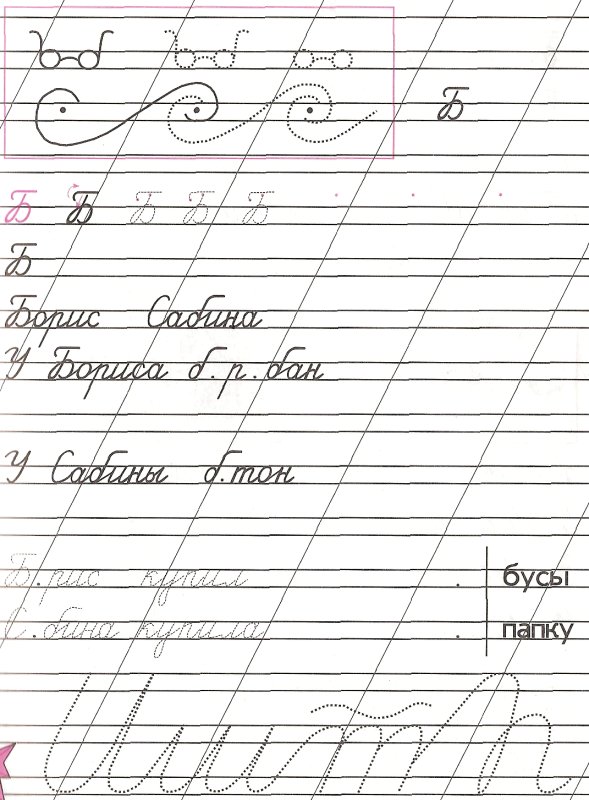 Б
Б Б Б Б Б
Б
Борис Сабина
У Бориса б.р.бан
У Сабины б.тон
Б.рис купил . бусы
С.бина купила . папку
И и и т п